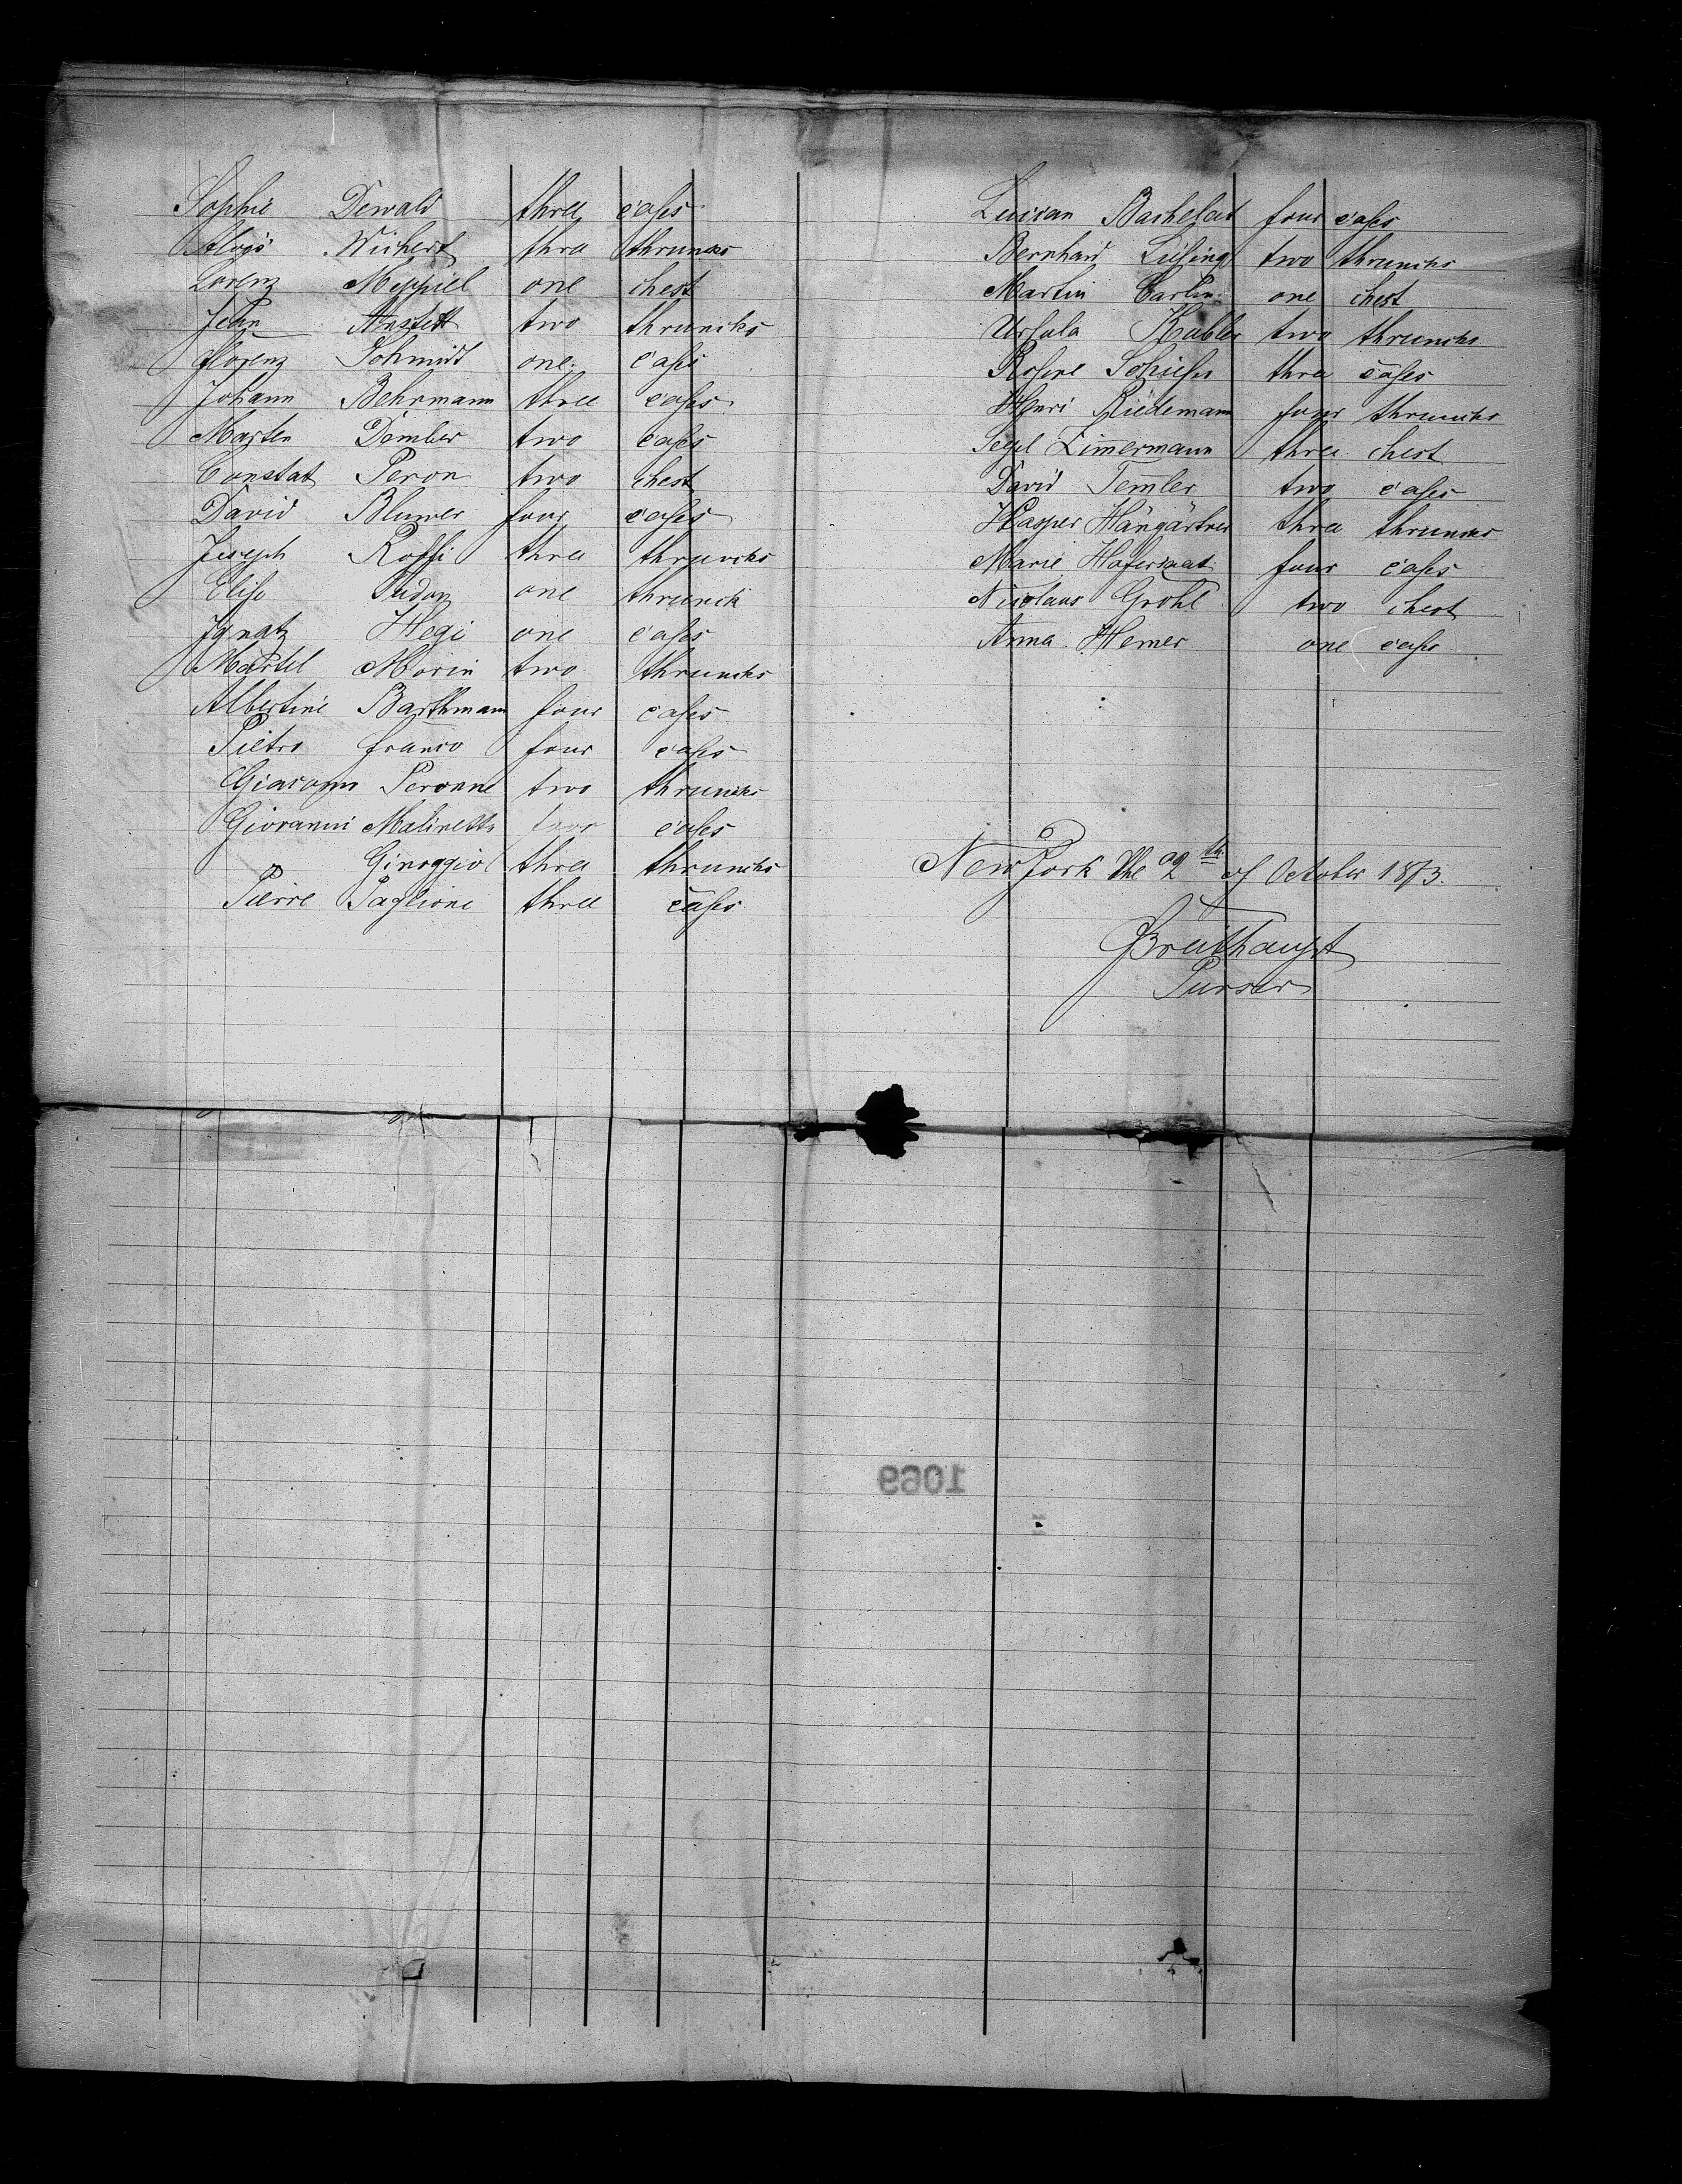 Sophie Dewald three cases
Aloys Wichert three thruncks
Lorenz Meppiel one chest
Jean Anstett two thruncks
Florenz Schmidt one cases
Johann Behrmann three cases
Marten Dember two cases
Constat Peron two chest
David Blumer four cases
Joseph Roffi three thruncks
Elise one thrunck
Ignatz Hegi one cases
Martel Morin two thruncks
Albertine Barthmann four cases
Pietro Franco four cases
Giacomo Peronne two thruncks
Giovanni Malinetto four cases
Ginoggio three thruncks
Pierre Paglione three cases
Lucian Bachelat four cases
Bernhard two thruncks
Martin Carlin one chest
Ursula Kubler two thruncks
Rosine Schiesser three cases
Henri Riedemann four thruncks
Zimmermann three chest
David Temler two cases
Kasper Hängärtner three thruncks
Marie Hafersaat four cases
Nicolaus Grohl two chest
Anna Hemer one cases
New York the 29th of October 1873.
Breithaupt
Purser
1069